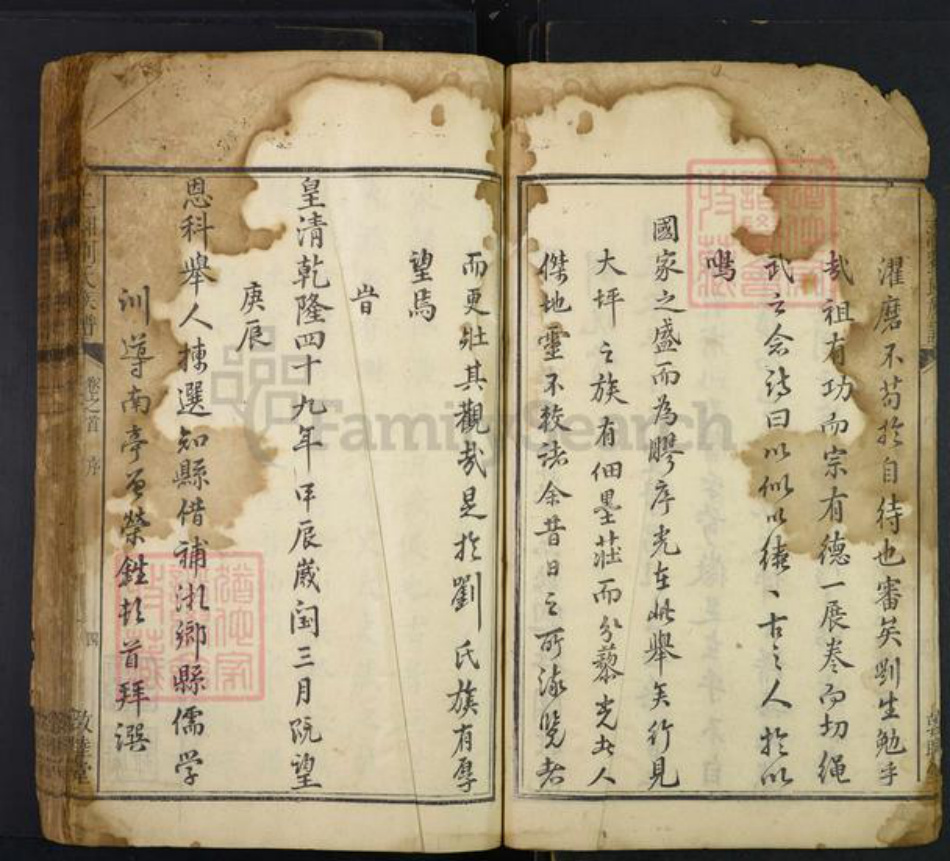 濯磨不苟於自待也審矣劉生勉乎
哉祖有功而宗有德一展卷而切繩
武之念詩曰以似以續續古之人於以
鳴
國家之盛而為膠序光在此舉矣行見
大坪之族有佃墨莊而分藜光者人
傑地靈不較諸余昔日之所流覽者
而更壯其觀哉是於劉氏族有厚
望焉
皆
皇清乾隆四十九年甲辰歲閏三月既望
庚辰
恩科舉人揀選知縣借補湘鄉縣儒学
訓導南亭曾榮 頓首拜撰
湘劉氏族譜
卷之首
序
四
敦睦堂
FamilySearch